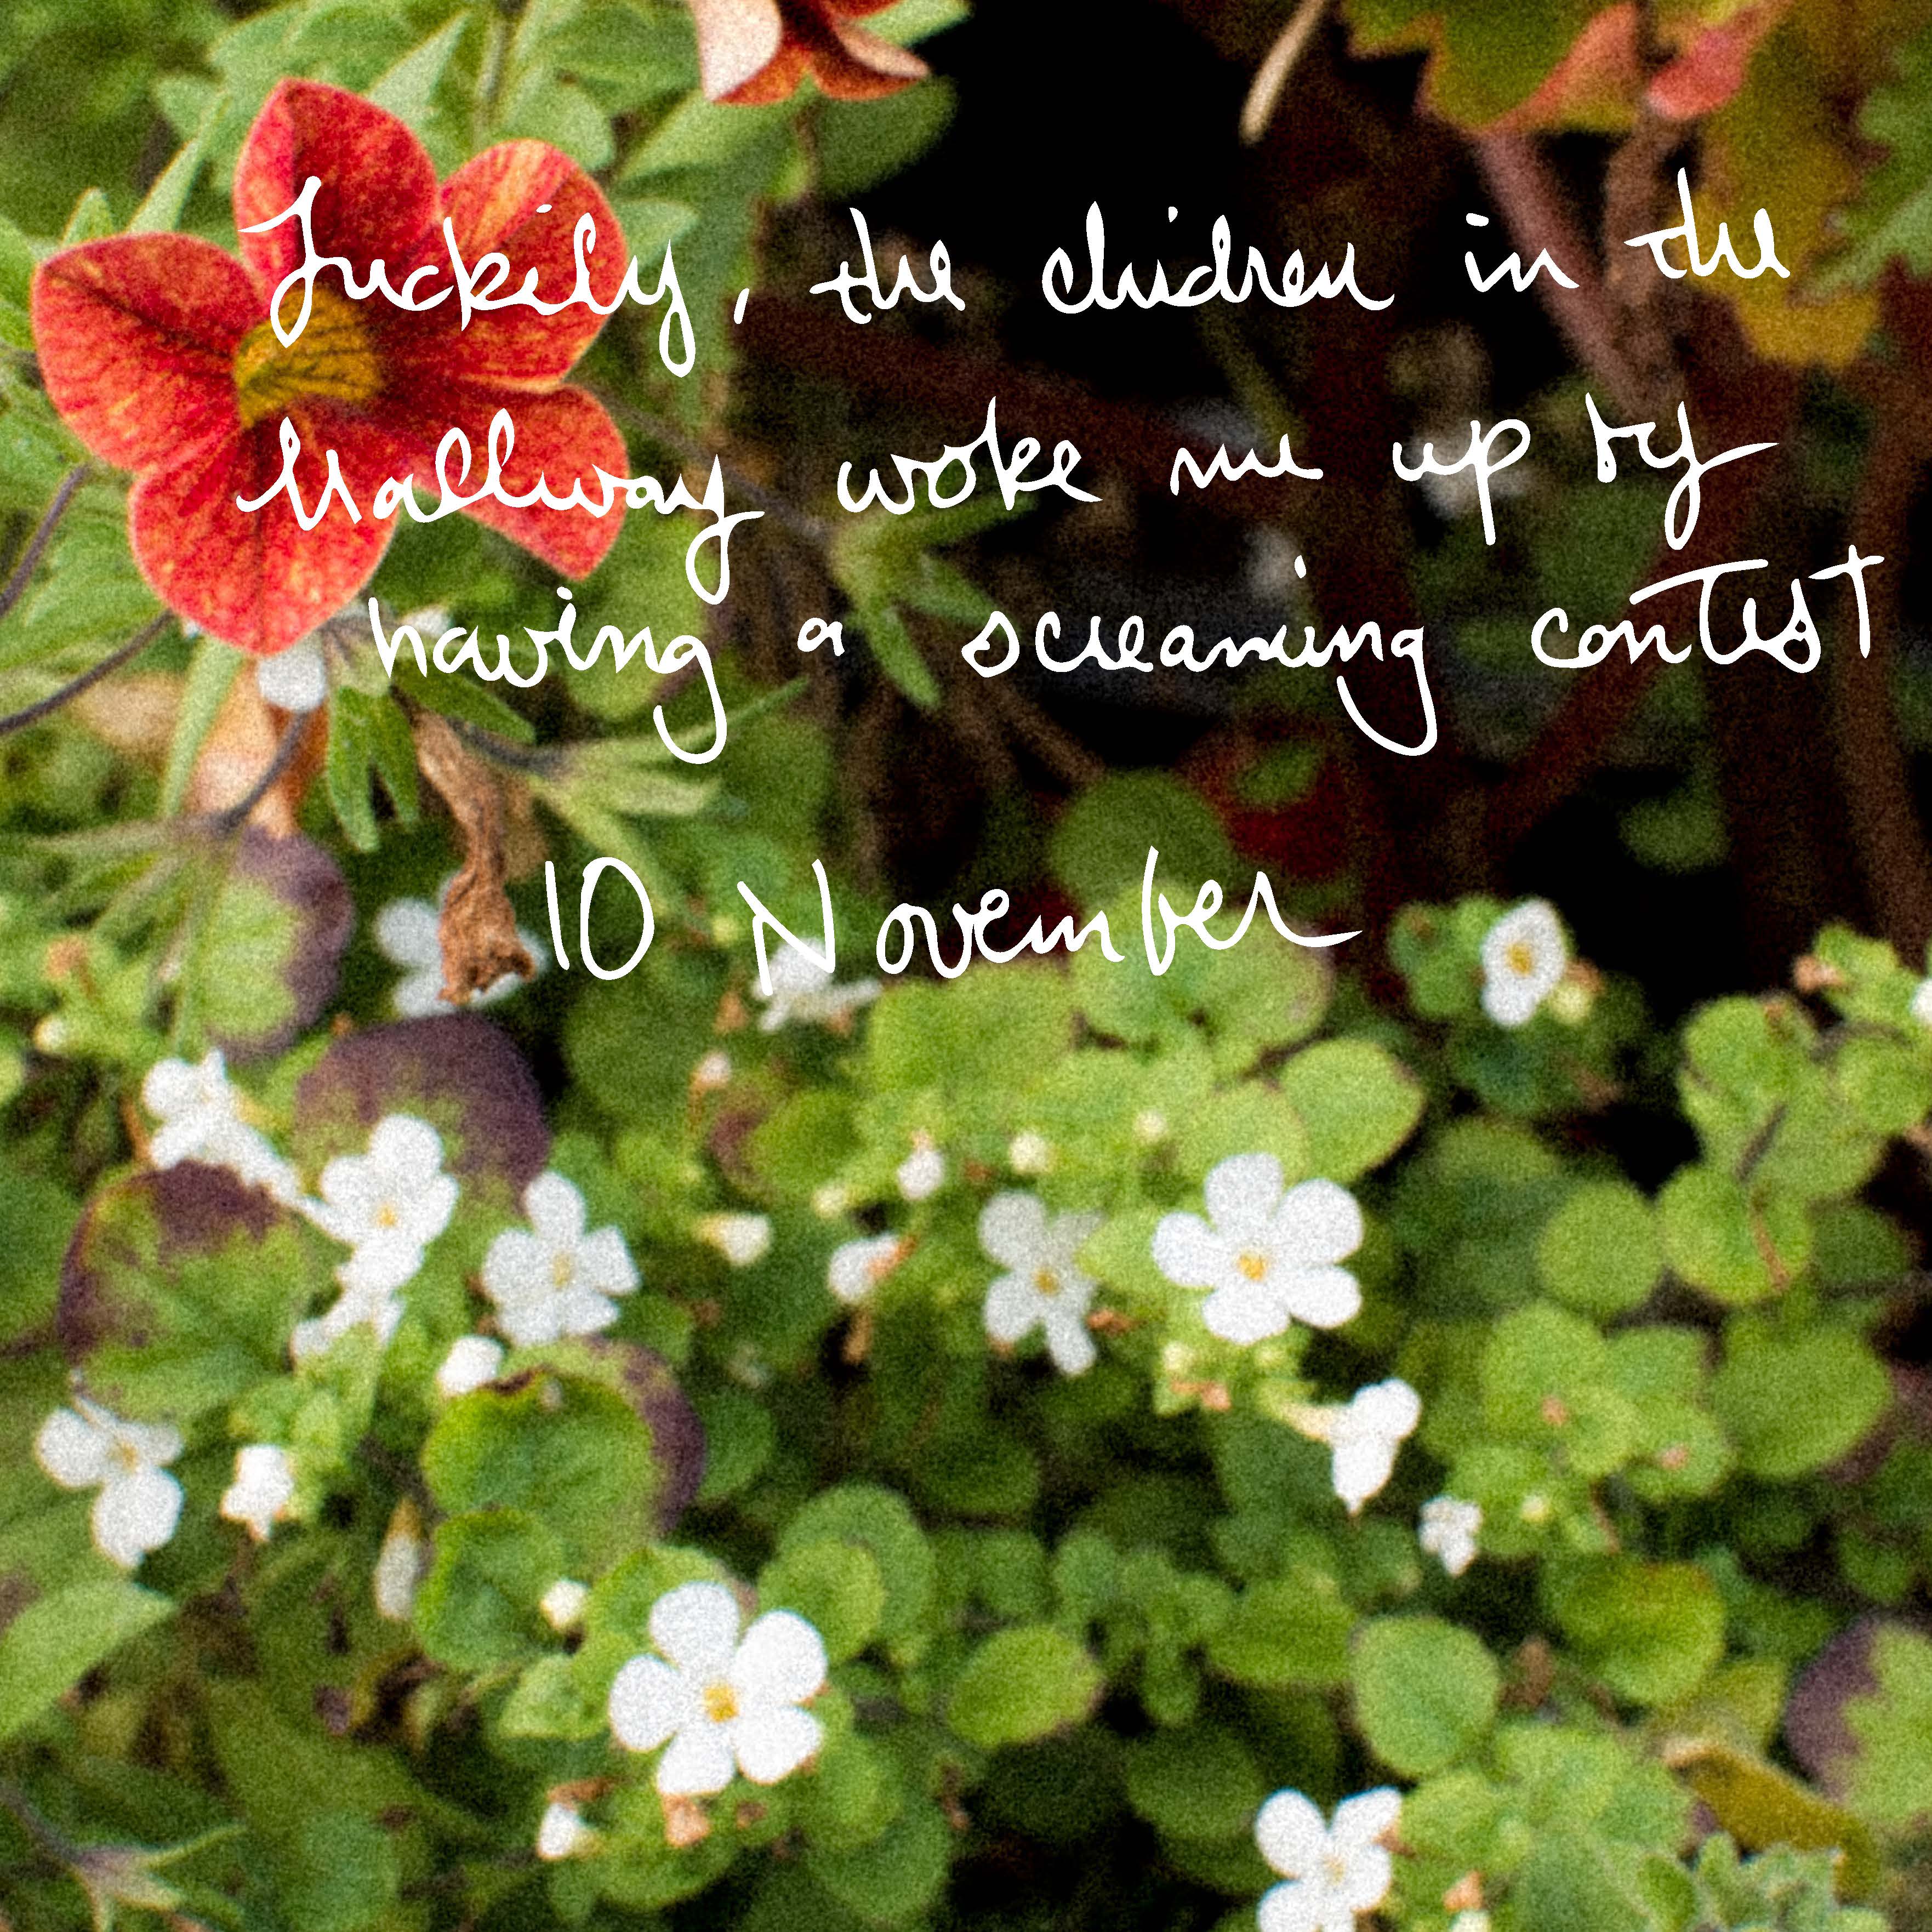 Luckily, the chidren in the
hallway woke me up by
having a screaming contest
10 November